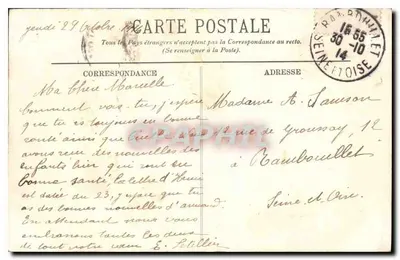 jeudi 29 Octobre
CARTE POSTALE
Tous les Pays étrangers n'acceptent pas la Correspondance au recto.
(Se renseigner à la Poste).
RAMBOUILLET
16 55
30 -10
14
SEINE ET OISE
CORRESPONDANCE
ADRESSE
Ma Chère Marcelle
comment vas-tu, j'espère
que tu es toujours en bonne
santé ainsi que
avons reçu des nouvelles des
enfants hier qui sont en
bonne santé, la lettre d'Henri
est datée du 23, j'espère que tu
as des bonnes nouvelles d'armand
En attendant nous vous
embrassons toutes les deux
de tout notre cœur E.
Madame A. Samson
rue de Groussay, 12
à Rambouillet
Seine et Oise